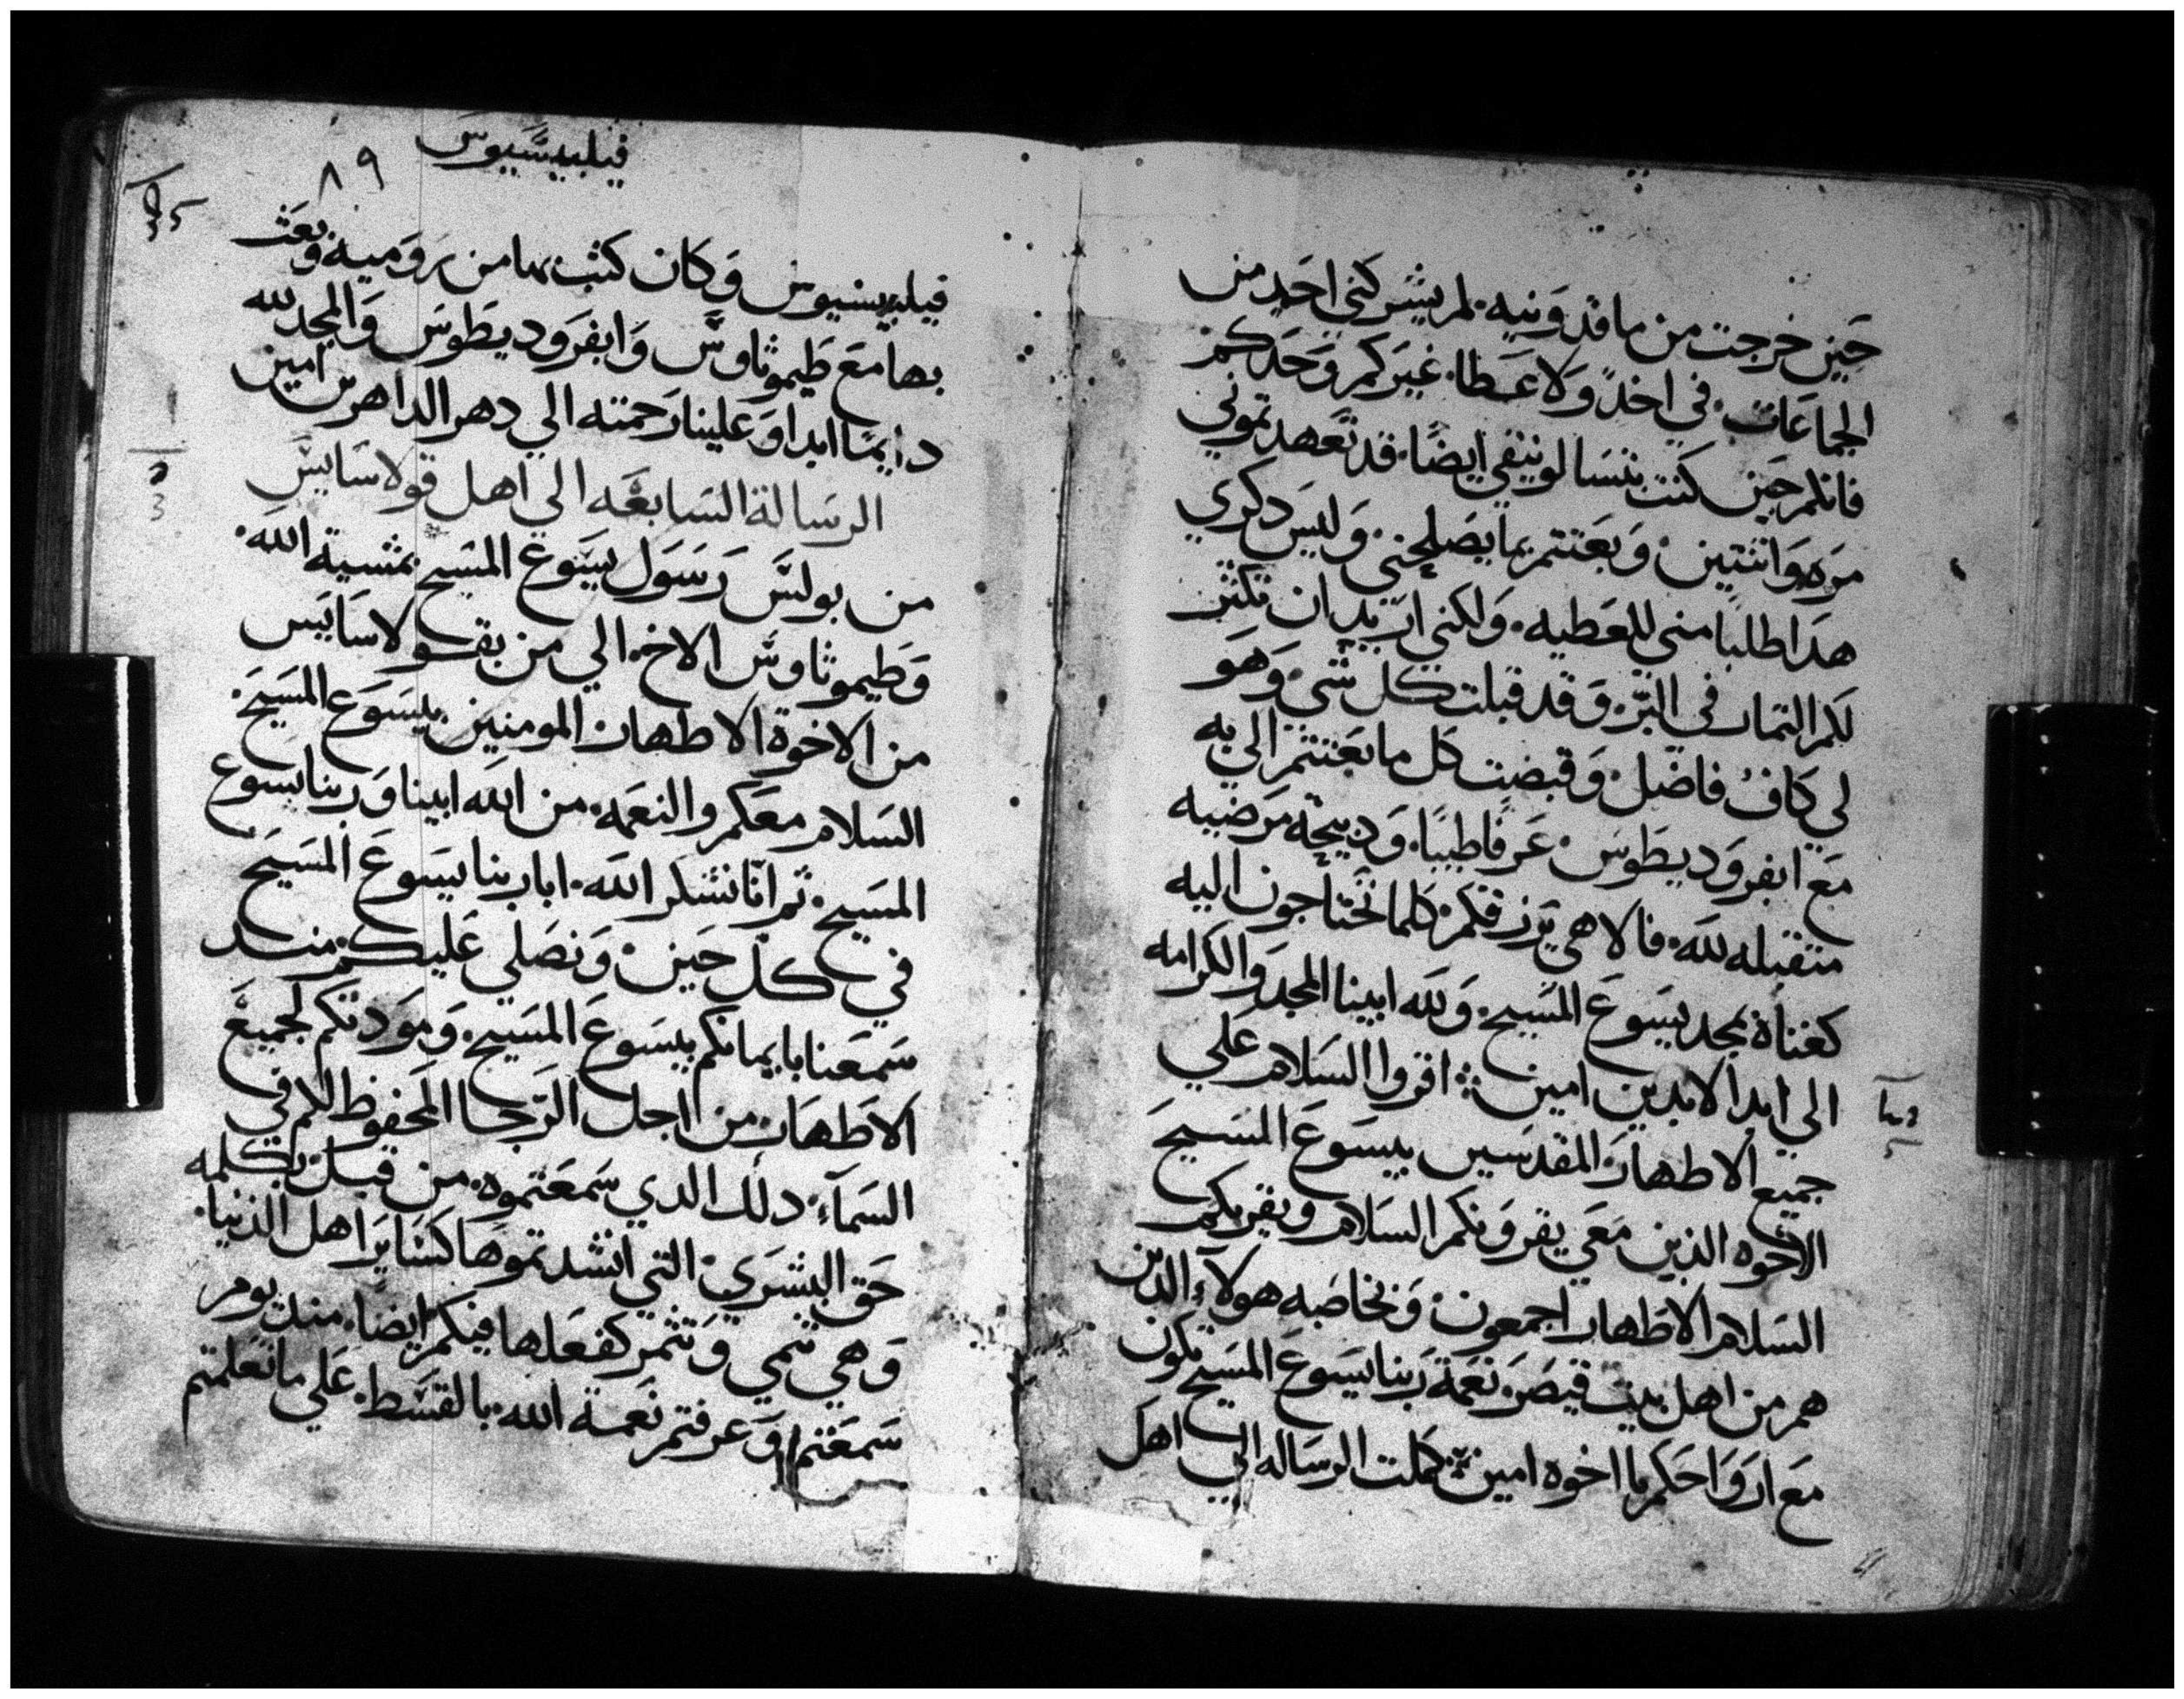 حَين خرجت من ماقدَونيه. لمر يشركني احَد من
الجماعَات. في اخدً وَلا عَطا. غيَركم وَحَدكم
فانكم حَين كنت بتسَالونيقي ايضًا. قد تعَهدتموني
مَره وَاثنتين. وَبعَثتم بما يصَلحني. وَليسَ دكري
هدَا طلبًا مني للعَطيه. وَلكني اريد ان تكثر
لكم الثمار في البرّ. وَقد قبلت كل شي. وَهَو
لي كَاف فاضَل. وَقبضت كل ما بعَثتم الي به
مَع ابفرَوديطوسَ. عَرفًا طيبًا. وَدبيحَة مَرضيه
متقبله لله. فالاهي يَرزقكم. كلما تحتاجون اليه
كغناهْ بمجد يسَوعَ المسَيح. وَلله ابينا المجد وَالكرامه
الي ابد الابدين امين : اقروا السَلام عَلي
جميع الاطهار المقدسَين بيسَوعَ المسَيحَ
الاخوه الذين مَعَي يقروَنكم السَلام ويقريكم
السَلام الاطهار اجمعون. وَبخاصَه هولآء الدين
هم من اهل بيت قيصَر. نعَمة رَبنا يسَوعَ المسَيح تكون
مَع ارَوَاحَكم يا اخوه امين : كملت الرسَاله الي اهل
فيلبيسَيوسَ
٨٩
فيلبيسيوسَ وَكان كتب بها من رَوَميه. وبعَث
بها مَع طَيموثاوسَ وَابفرَوديطوسَ وَالمجد لله
دايمًا ابدا وَعَلينا رَحمته الي دهر الداهرين امين
الرسَالة السَابعَه الي اهل قولاسَايسَ
من بولسَ رَسَول يسَوعَ المسَيح بمشية الله.
وَطَيموثاوسَ الاخ. الي من بقولاسَايَس
من الاخوة الاطهار المومنين. بيسَوع المسَيحَ.
السَلام معَكم والنعَمه. من الله ابينا وَربنا يسَوع
المسَيح. ثم انّا نشكر الله. ابا ربنا يسَوعَ المسَيحَ
في كل حَين. وَنصَلي عَليكم. مند
سَمعَنا بايمانكم بيسَوعَ المسَيح. وَمَودتكم لجميعَ
الاطَهار. من اجل الرَجا المحَفوظ لكم في
السَمآء. دلك الدي سَمعَتموه. من قبل بكلمه
حَق البشري. التي انشدتموَها كسَايَر اهل الدنيا.
وَهي تنمي وَتثمر كفعَلها فيكم ايضَا. مند يوم
سَمعَتم. وَعَرفتم نعَمة الله. بالقسَط. عَلي ما تعَلمتم